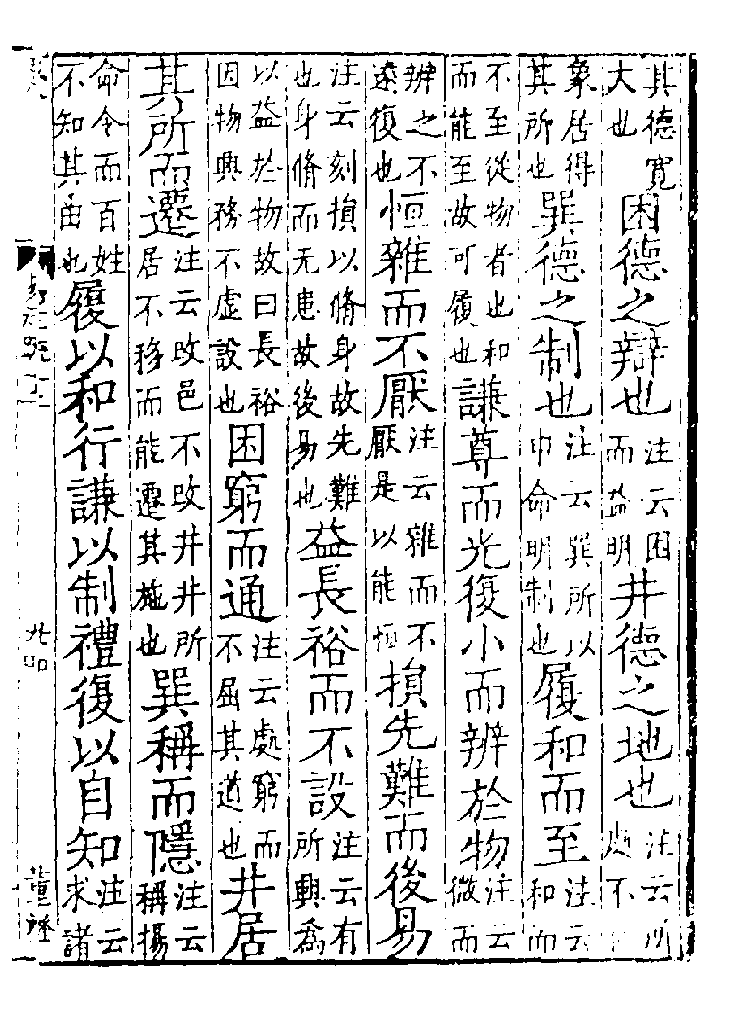 其德寬大也困德之辯也注云困而益明井德之地也注云所處不
象居得其所也巽德之制也注云巽所以申命明制也履和而至注云和而
不至從物者也和而能至故可履也謙尊而光復小而辨於物注云微而
辨之不遠復也恒雜而不厭注云雜而不厭是以能恒損先難而後易
注云刻損以脩身故先難也身脩而无患故後易也益長裕而不設注云有所興為
以益於物故曰長裕因物興務不虛設也困窮而通注云處窮而不屈其道也井居
其所而遷注云改邑不改井井所居不移而能遷其施也巽稱而隱注云稱揚
命令而百姓不知其由也履以和行謙以制禮復以自知注云求諸
董